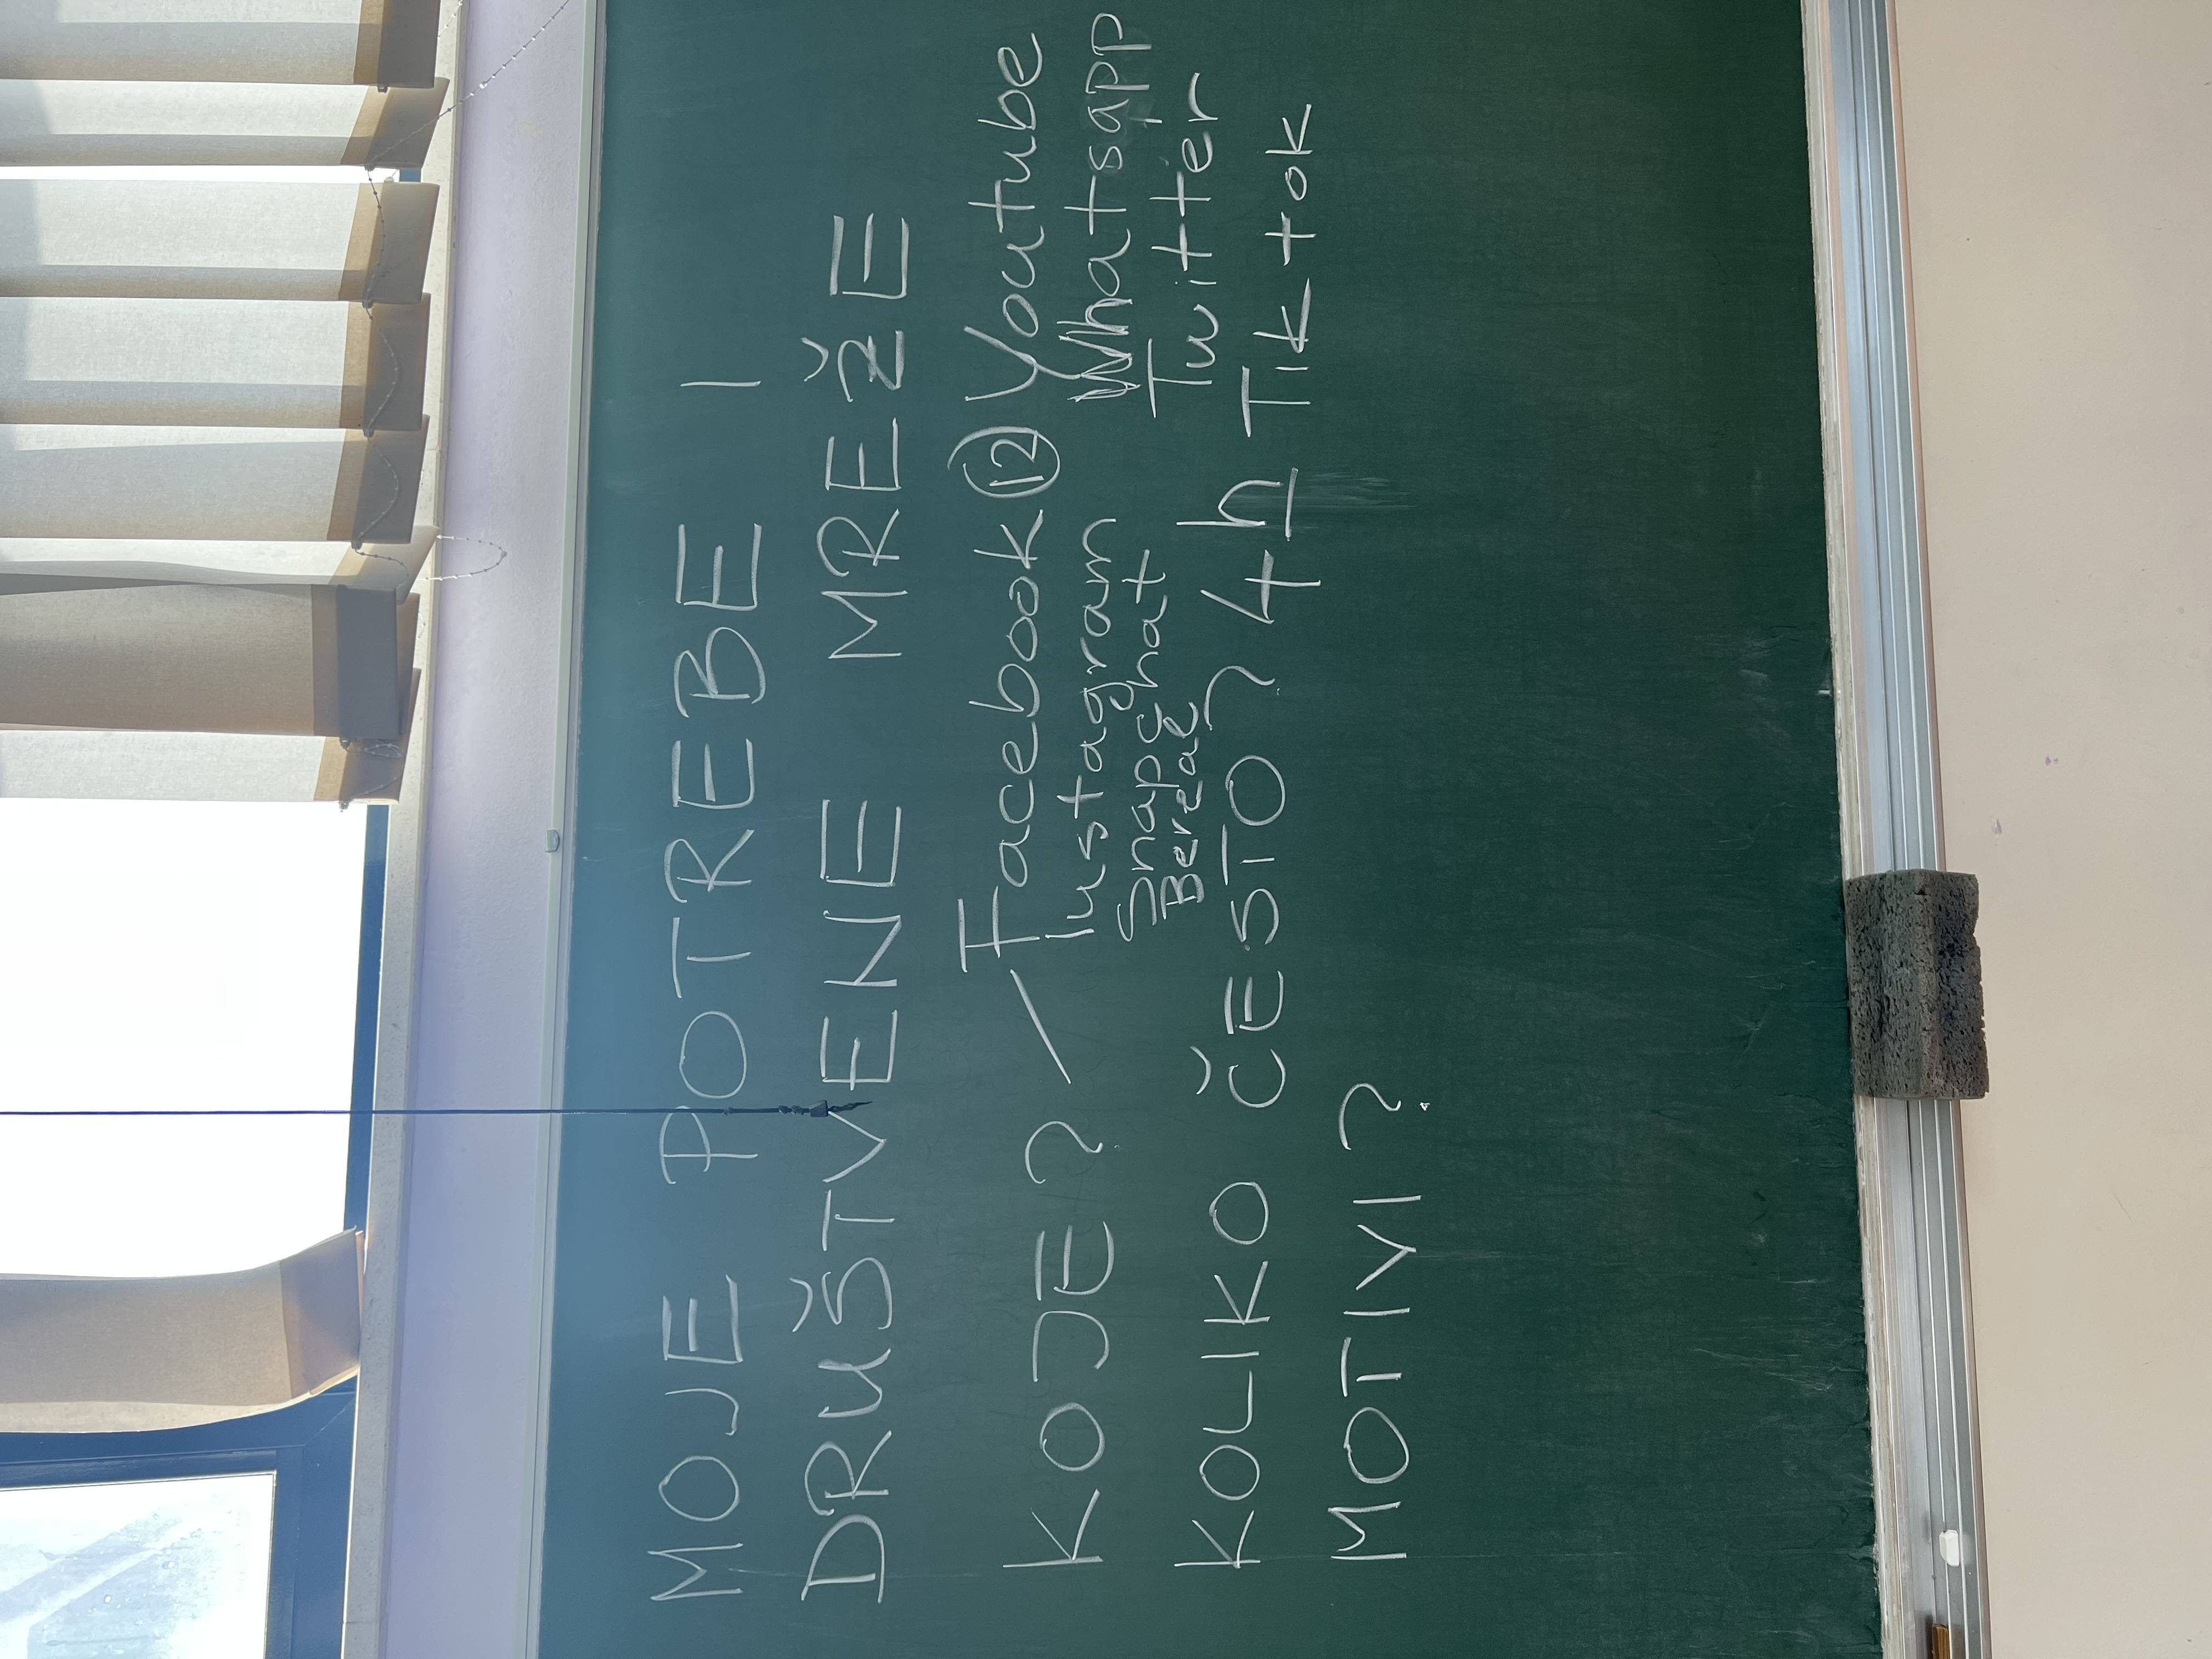 MOJE POTREBE I
DRUŠTVENE MREŽE
KOJE? / Facebook 12 Youtube
Instagram Whatsapp
Snapchat Twitter
Bereal
KOLIKO ČESTO? 4h Tik tok
MOTIVI?